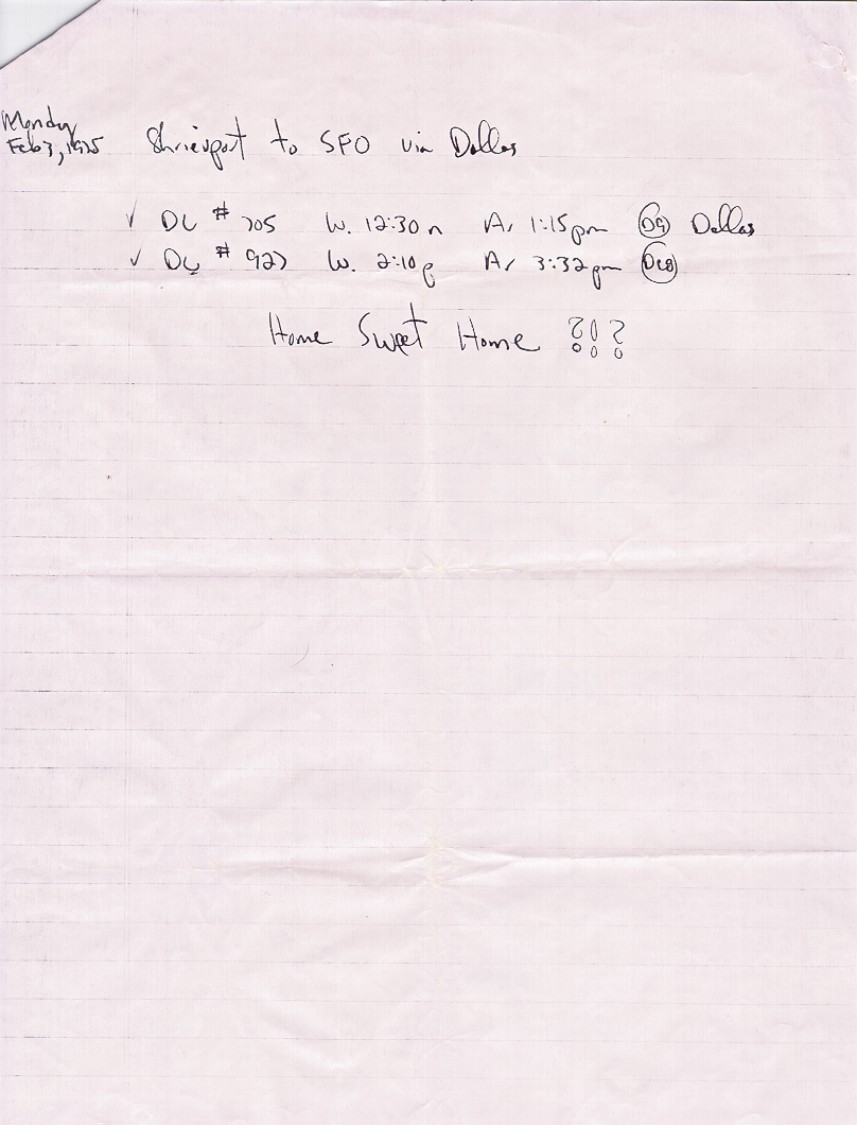 Monday
Feb 3, 1975 Shrieveport to SFO via Dallas
✓ DL # 705 Lv. 12:30 n Ar 1:15 pm D9 Dallas
✓ DL # 927 Lv. 2:10 p Ar 3:32 pm DC8
Home Sweet Home ?!?